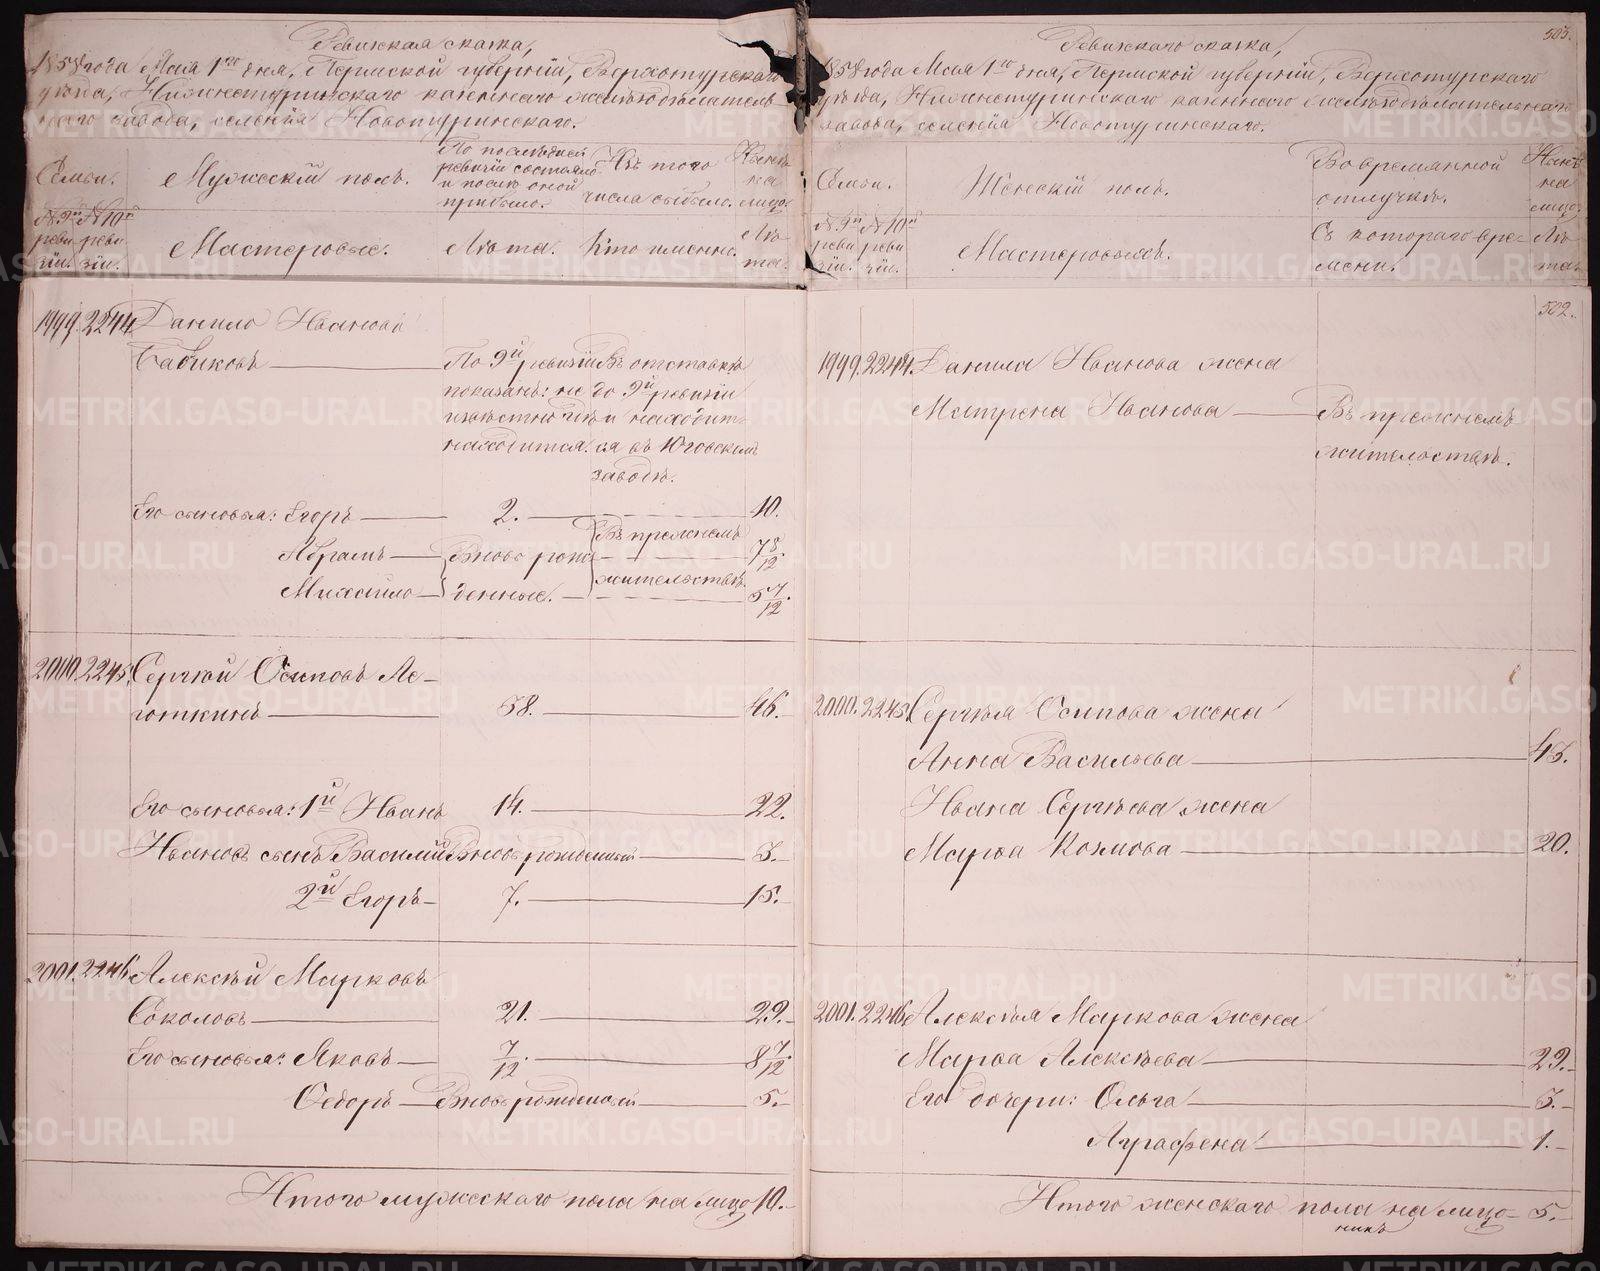 Ревижская сказка,
1858 года Мая 1го дня, Пермской губерніи, Верхотурскаго
уѣзда, Нижнетуринскаго казеннаго желѣзодѣлатель-
наго завода, селенія Новотуринскаго.
Семьи.
Мужескій полъ.
По послѣдней ревизіи состояло и послѣ оной прибыло.
Изъ того числа выбыло.
Нынѣ на лицо.
№ 9й ревизіи.
№ 10й ревизіи.
Мастеровые.
Лѣта.
Кто именно.
Лѣта.
1999. 2244. Данило Ивановъ
Бабиковъ
По 9й ревизіи показанъ: не извѣстно гдѣ находится.
Въ отставкѣ до 9й ревизіи и находится въ Юговскомъ заводѣ.
Его сыновья: Егоръ 2. 10.
Абрамъ Вновь рож- Въ прежнемъ 7 8/12.
Михайло денные. жительствѣ. 5 7/12.
2000. 2245. Сергѣй Осиповъ Ле-
готкинъ 38. 46.
Его сыновья: 1й Иванъ 14. 22.
Ивановъ сынъ Василий Вновь рожденный 3.
2й Егоръ 7. 15.
2001. 2246. Алексѣй Марковъ
Соколовъ 21. 29.
Его сыновья: Яковъ 7/12. 8 7/12.
Ѳедоръ Вновь рожденный 5.
Итого мужескаго пола на лицо 10.
503.
Ревижская сказка,
1858 года Мая 1го дня, Пермской губерніи, Верхотурскаго
уѣзда, Нижнетуринскаго казеннаго желѣзодѣлательнаго
завода, селенія Новотуринскаго.
Семьи.
Женскій полъ.
Во временной отлучкѣ.
Нынѣ на лицо.
№ 9й ревизіи.
№ 10й ревизіи.
Мастеровыхъ.
Съ котораго вре-
мени.
Лѣта.
502.
1999. 2244. Данила Иванова жена
Матрена Иванова Въ прежнемъ
жительствѣ.
2000. 2245. Сергѣя Осипова жена
Анна Васильева 43.
Ивана Сергѣева жена
Марѳа Козмова 20.
2001. 2246. Алексѣя Маркова жена
Марѳа Алексѣева 29.
Его дочери: Ольга 3.
Аграфена 1.
Итого женскаго пола на лицо 5.
METRIKI.GASO-URAL.RU